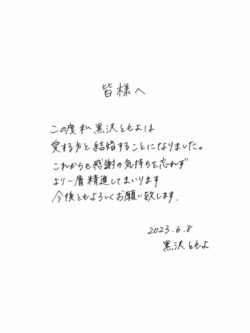 皆様へ
この度私 黒沢ともよは
愛する方と結婚することになりました。
これからも感謝の気持ちを忘れず
より一層精進してまいります
今後ともよろしくお願い致します.
2023.6.8
黒沢ともよ